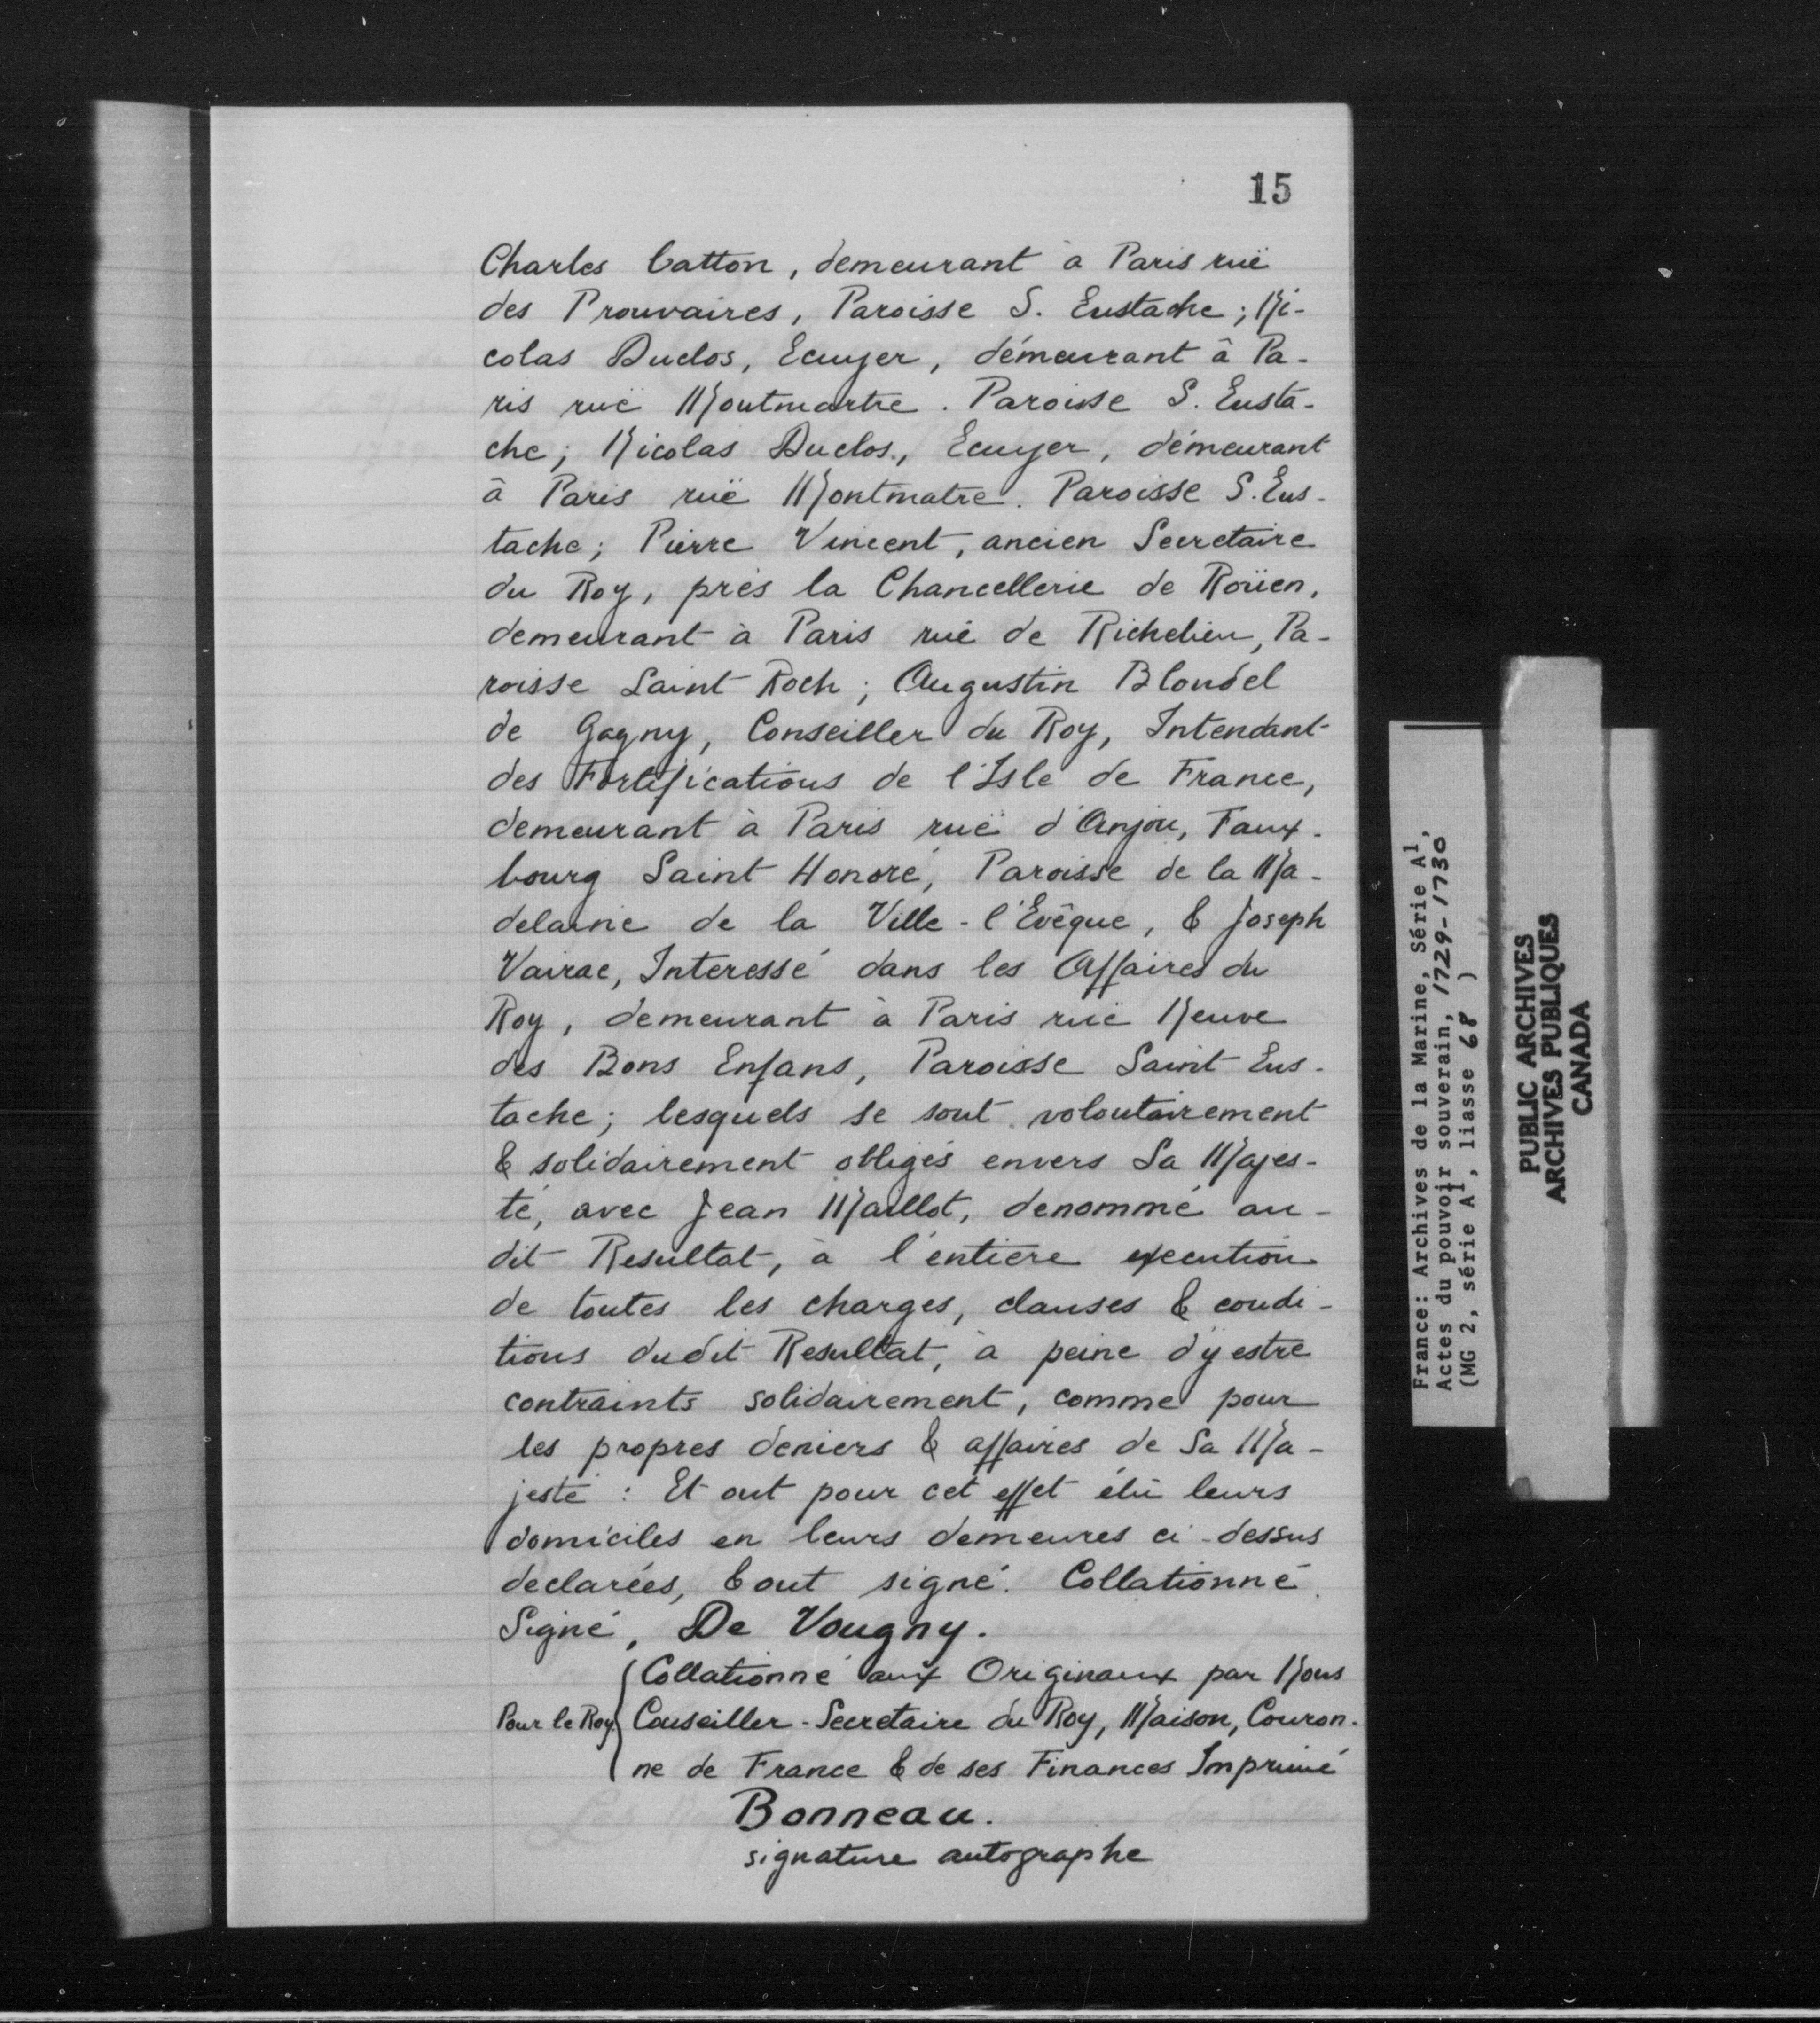 15
Charles Catton, demeurant à Paris ruë
des Prouvaires, Paroisse S. Eustache; Ni-
colas Duclos, Ecuyer, démeurant â Pa-
ris ruë Montmartre. Paroisse S. Eusta-
che; Nicolas Duclos, Ecuyer, démeurant
â Paris ruë Montmatre. Paroisse S. Eus-
tache; Pierre Vincent, ancien Secretaire
du Roy, près la Chancellerie de Roüen,
demeurant à Paris ruë de Richelieu, Pa-
roisse Saint Roch; Augustin Blondel
de Gagny, Conseiller du Roy, Intendant
des Fortifications de l'Isle de France,
demeurant à Paris ruë d'Anjou, Faux-
bourg Saint Honoré, Paroisse de la Ma-
delaine de la Ville-l'Evêque, & Joseph
Vairac, Interessé dans les Affaires du
Roy, demeurant à Paris ruë Neuve
des Bons Enfans, Paroisse Saint Eus-
tache; lesquels se sont volontairement
& solidairement obligés envers Sa Majes-
té, avec Jean Maillot, denommé au-
dit Resultat, à l'entiere execution
de toutes les charges, clauses & condi-
tions dudit Resultat, à peine d'y estre
contraints solidairement, comme pour
les propres deniers & affaires de Sa Ma-
jesté : Et ont pour cet effet élû leurs
domiciles en leurs demeures ci-dessus
declarées, & ont signé. Collationné.
Signé, De Vougny.
Collationné aux Originaux par Nous
Pour le Roy Conseiller-Secretaire du Roy, Maison, Couron-
ne de France & de ses Finances Imprimé
Bonneau.
signature autographe
France: Archives de la Marine, Série A1,
Actes du pouvoir souverain, 1729-1730
(MG 2, série A1, liasse 68 )
PUBLIC ARCHIVES
ARCHIVES PUBLIQUES
CANADA